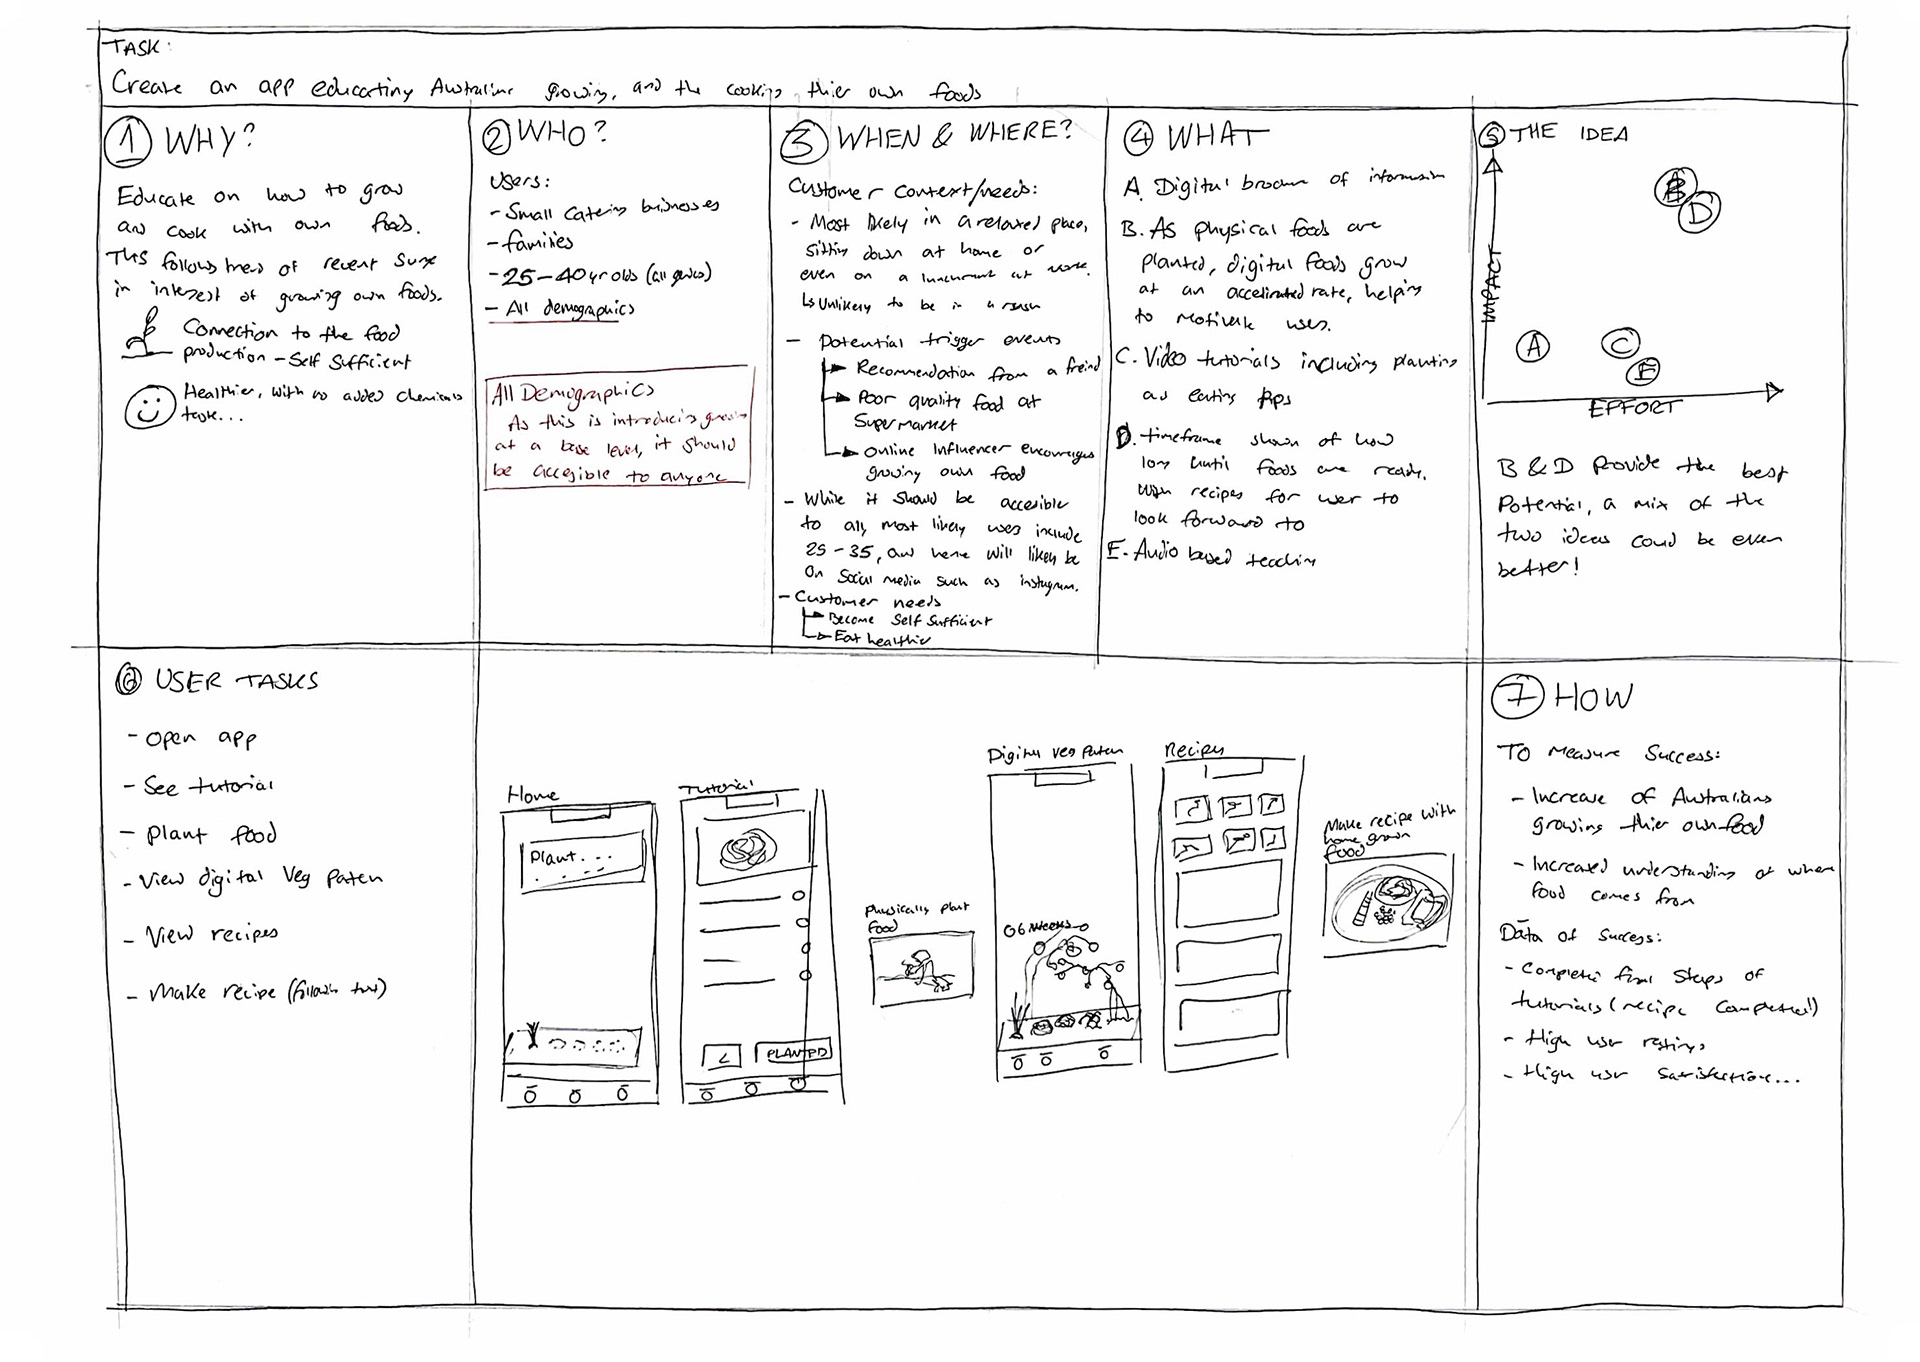 TASK:
Create an app educating Australians growing, and the cooking thier own foods
① WHY?
Educate on how to grow
and cook with own foods.
This follows trend of recent surge
in interest of growing own foods.
Connection to the food
production - Self Sufficient
Healthier, with no added chemicals
task...
② WHO?
Users:
- Small catering buisnesses
- families
- 25-40 yr olds (all )
- All demographics
All Demographics
As this is introducing
at a base level, it should
be accesible to anyone
③ WHEN & WHERE?
Customer context/needs:
- Most likely in a relaxed place,
sitting down at home or
even on a at work.
↳ Unlikely to be in a rush
- Potential trigger events
Recommendation from a freind
Poor quality food at
Supermarket
Online influencer encourages
growing own food
- While it should be accesible
to all, most likely users include
25-35, and hence will likely be
on social media such as instagram.
- Customer needs
Become Self Sufficient
Eat healthier
④ WHAT
A. Digital brochure of information
B. As physical foods are
planted, digital foods grow
at an accelirated rate, helping
to motivate users.
C. Video tutorials including planting
as eating tips
D. timeframe shown of how
long until foods are ready.
With recipes for user to
look forward to
E. Audio based teaching
⑤ THE IDEA
IMPACT
B
D
A
C
E
EFFORT
B & D provide the best
Potential, a mix of the
two ideas could be even
better!
⑥ USER TASKS
- open app
- See tutorial
- plant food
- View digital Veg Paten
- View recipes
- Make recipe (follow tut)
Home
Plant...
Tutorial
<
PLANTED
Physically plant
food
Digital Veg Paten
6 weeks
Recipes
Make recipe with
home grown
food
⑦ HOW
To Measure Success:
- Increase of Australians
growing thier own food
- Increased understanding of where
food comes from
Data of Success:
- Complete final steps of
tutorials (recipe completed)
- High user ratings
- High user satisfaction...